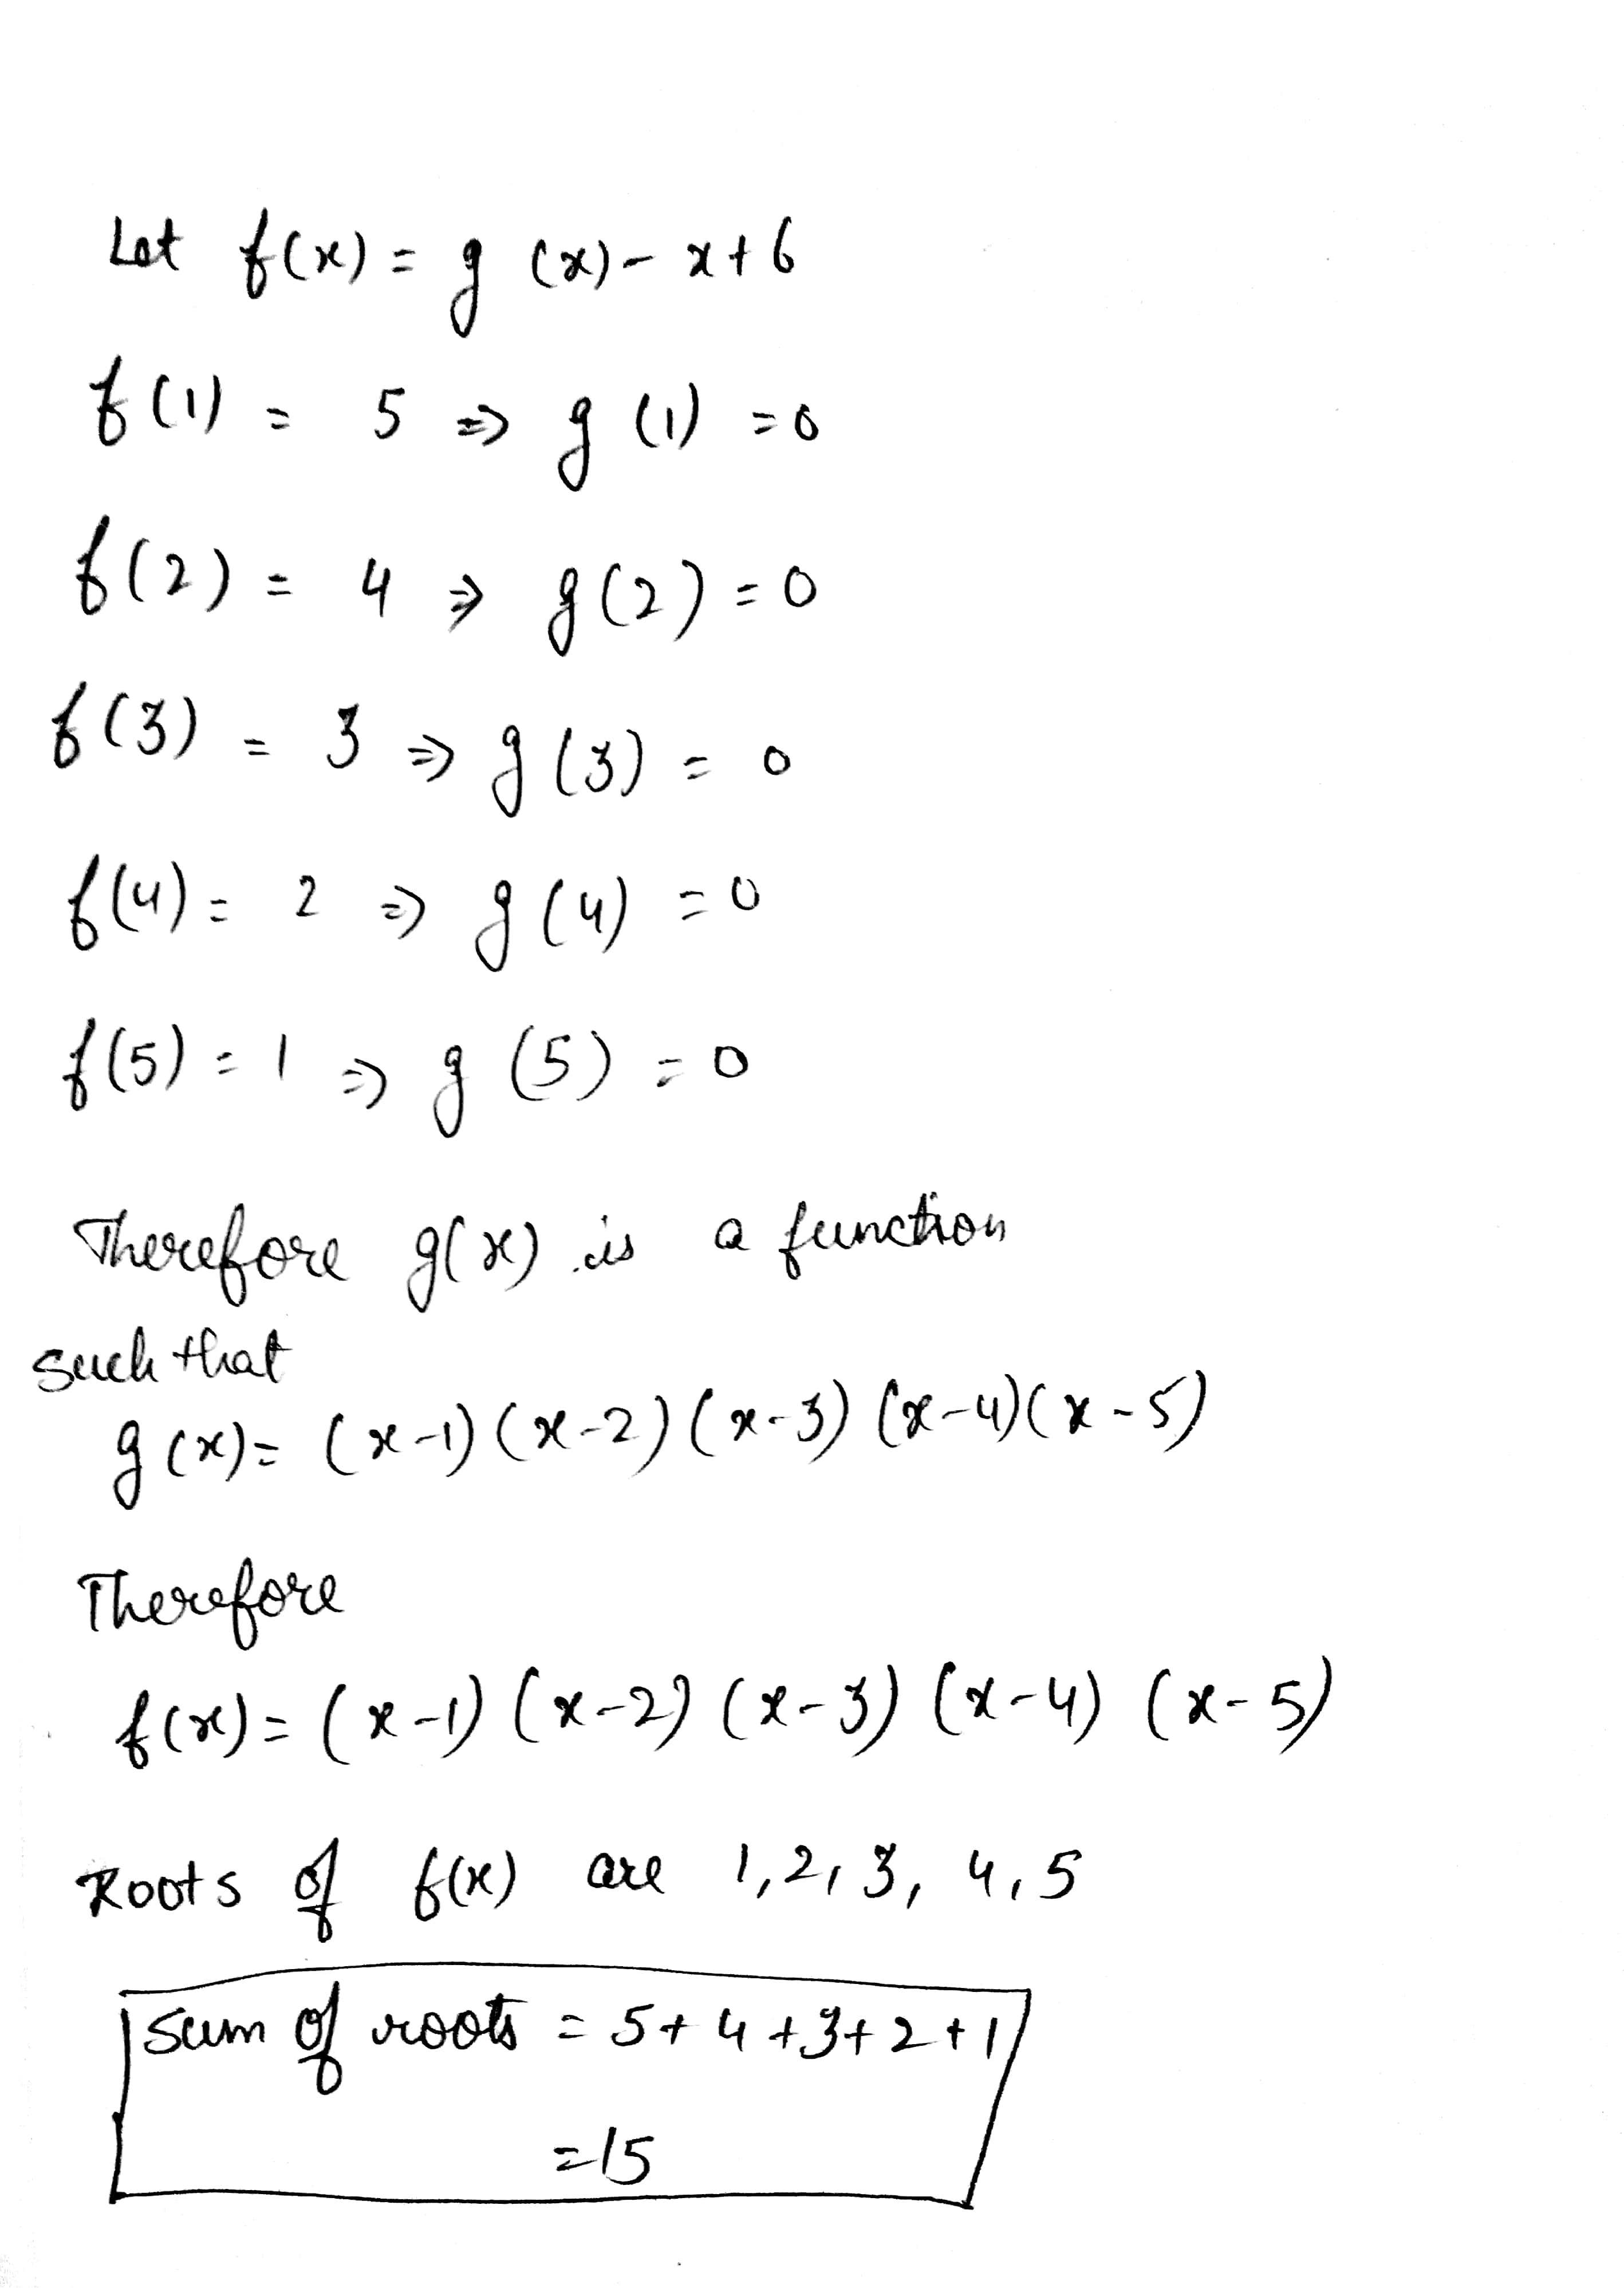 Let f(x) = g(x) - x + 6
f(1) = 5 => g(1) = 0
f(2) = 4 => g(2) = 0
f(3) = 3 => g(3) = 0
f(4) = 2 => g(4) = 0
f(5) = 1 => g(5) = 0
Therefore g(x) is a function
such that
g(x) = (x-1)(x-2)(x-3)(x-4)(x-5)
Therefore
f(x) = (x-1)(x-2)(x-3)(x-4)(x-5)
Roots of f(x) are 1,2,3,4,5
Sum of roots = 5+4+3+2+1
=15